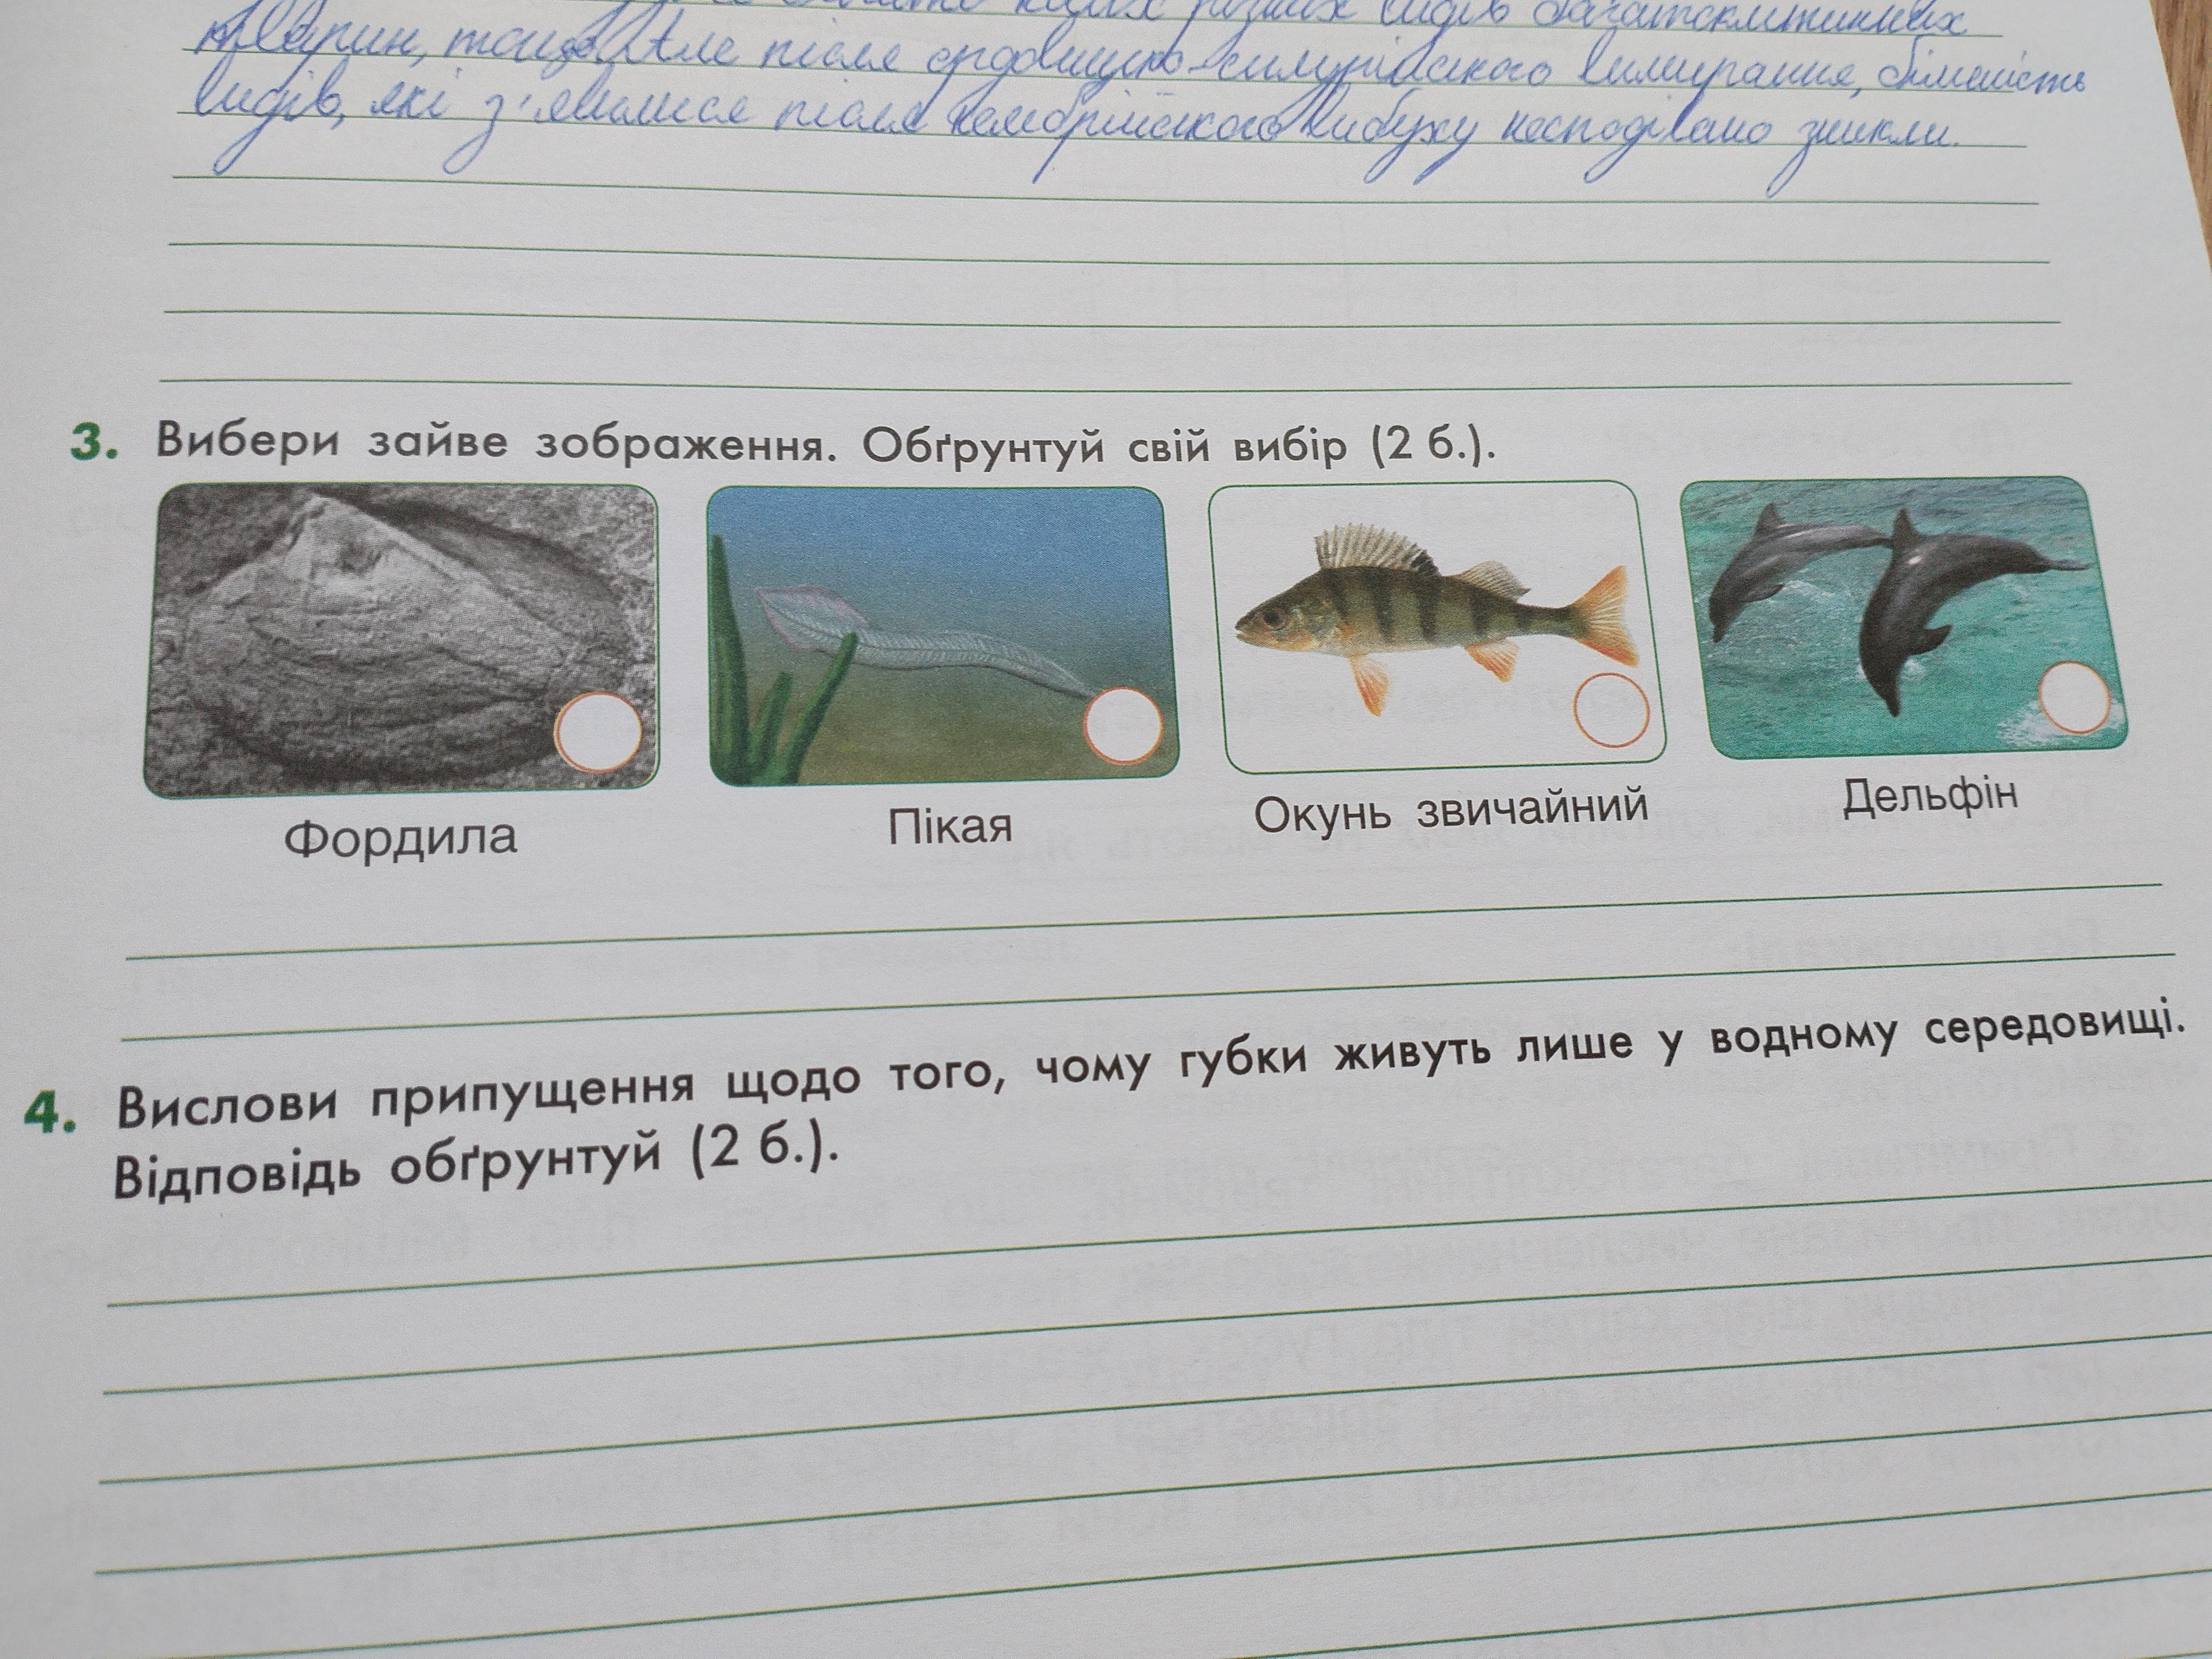 різних видів багатоклітинних
тварин, тощо. Але після ордовицько-силурійського вимирання, більшість
видів, які з'явилися після кембрійського вибуху несподівано зникли.
3. Вибери зайве зображення. Обґрунтуй свій вибір (2 б.).
Фордила
Пікая
Окунь звичайний
Дельфін
4. Вислови припущення щодо того, чому губки живуть лише у водному середовищі.
Відповідь обґрунтуй (2 б.).